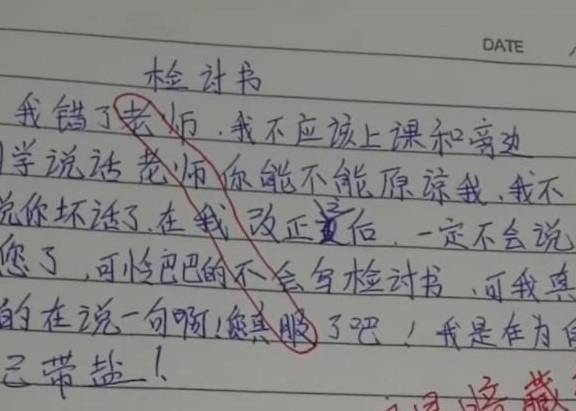 DATE
检讨书
我错了老师,我不应该上课和旁边
学说话老师你能不能原谅我,我不
说你坏话了,在我改正之后,一定不会说
您了,可怜巴巴的不会写检讨书,可我真
的在说一句啊!您真服了吧!我是在为自
己带盐!
藏